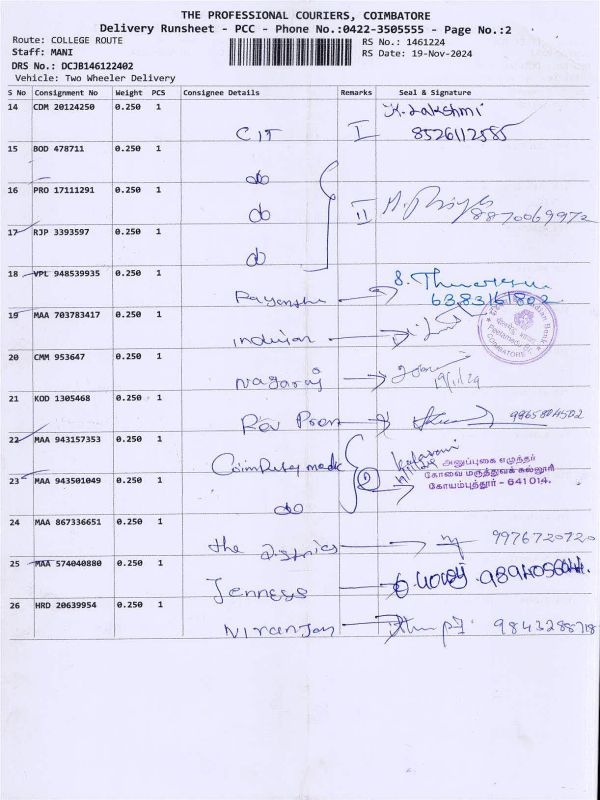 THE PROFESSIONAL COURIERS, COIMBATORE
Delivery Runsheet - PCC - Phone No.:0422-3505555 - Page No.:2
Route: COLLEGE ROUTE
RS No.: 1461224
Staff: MANI
RS Date: 19-Nov-2024
DRS No.: DCJB146122402
Vehicle: Two Wheeler Delivery
S No Consignment No Weight PCS Consignee Details Remarks Seal & Signature
14 CDM 20124250 0.250 1 CIT I K. Lakshmi
8526112585
15 BOD 478711 0.250 1 do
16 PRO 17111291 0.250 1 do II 8870069972
17 RJP 3393597 0.250 1 do
18 VPL 948539935 0.250 1 S.
6383161802
19 MAA 703783417 0.250 1 indian
Indian Bank
COIMBATORE
20 CMM 953647 0.250 1 Nagaraj 19/11/24
21 KOD 1305468 0.250 1 Rev 9965804502
22 MAA 943157353 0.250 1
அனுப்புகை எழுத்தர்
கோவை மருத்துவக் கல்லூரி
கோயம்புத்தூர் - 641014.
23 MAA 943501049 0.250 1 do
24 MAA 867336651 0.250 1 the 9976720720
25 MAA 574040880 0.250 1 Jenneys
26 HRD 20639954 0.250 1 Niranjan 9843288718